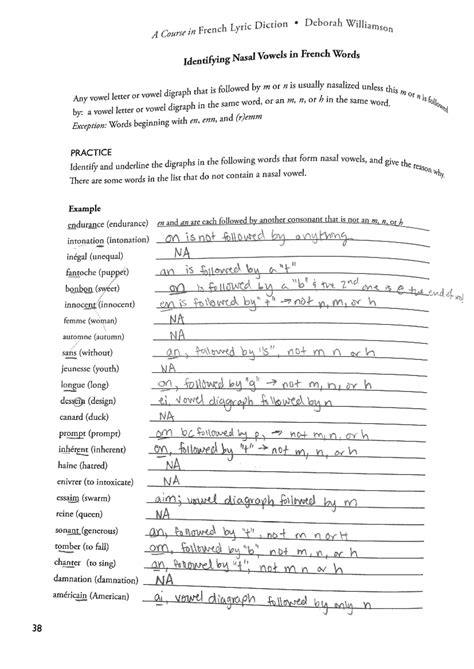 A Course in French Lyric Diction • Deborah Williamson
Identifying Nasal Vowels in French Words
Any vowel letter or vowel digraph that is followed by m or n is usually nasalized unless this m or n is followed
by: a vowel letter or vowel digraph in the same word, or an m, n, or h in the same word.
Exception: Words beginning with en, enn, and (r)emm
PRACTICE
Identify and underline the digraphs in the following words that form nasal vowels, and give the reason why.
There are some words in the list that do not contain a nasal vowel.
Example
endurance (endurance) en and an are each followed by another consonant that is not an m, n, or h
intonation (intonation) on is not followed by anything
inégal (unequal) NA
fantoche (puppet) an is followed by a "t"
bonbon (sweet) on is followed by a "b" & the 2nd one is @ the end of
innocent (innocent) en is followed by "t" → not n, m, or h
femme (woman) NA
automne (autumn) NA
sans (without) an, followed by "s", not m n or h
jeunesse (youth) NA
longue (long) on, followed by "g" → not m, n, or h
dessein (design) ei, vowel diagraph followed by n
canard (duck) NA
prompt (prompt) om bc followed by p, → not m, n, or h
inhérent (inherent) en, followed by "t" → not m, n, or h
haine (hatred) NA
enivrer (to intoxicate) NA
essaim (swarm) aim; vowel diagraph followed by m
reine (queen) NA
sonant (generous) an, followed by "t", not m n or H
tomber (to fall) om, followed by "b", not m, n, or h
chanter (to sing) an, followed by "t", not m n or h
damnation (damnation) NA
américain (American) ai, vowel diagraph followed by only n
38